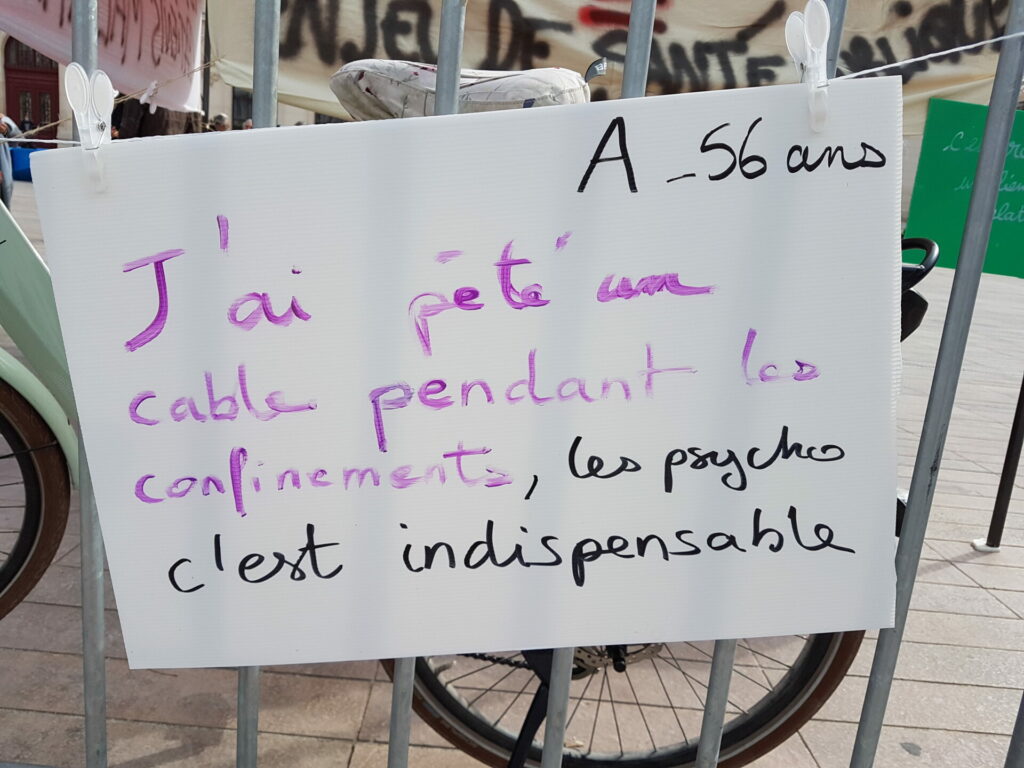 NJEU DE SANTÉ
A _ 56 ans
J'ai pété un
cable pendant les
confinements, les psycho
c'est indispensable